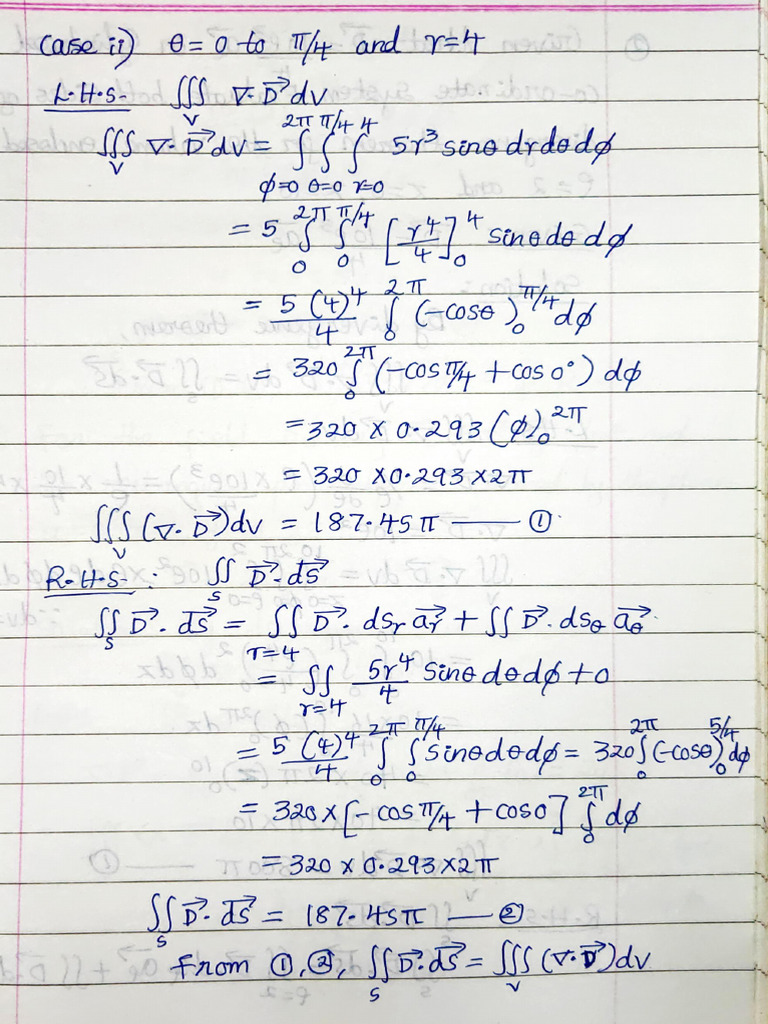 Case ii) θ = 0 to π/4 and r=4
L.H.S- ∭_V ∇·D⃗ dv
∭_V ∇·D⃗ dv = ∫_{φ=0}^{2π} ∫_{θ=0}^{π/4} ∫_{r=0}^{4} 5r³ sinθ dr dθ dφ
= 5 ∫_0^{2π} ∫_0^{π/4} [r⁴/4]_0^4 sinθ dθ dφ
= 5(4)⁴/4 ∫_0^{2π} (-cosθ)_0^{π/4} dφ
= 320 ∫_0^{2π} (-cos π/4 + cos 0°) dφ
= 320 × 0.293 (φ)_0^{2π}
= 320 × 0.293 × 2π
∭_V (∇·D⃗)dv = 187.45π —— ①
R.H.S- : ∬_S D⃗·ds⃗
∬_S D⃗·ds⃗ = ∬_{r=4} D⃗·ds_r a⃗_r + ∬ D⃗·ds_θ a⃗_θ
= ∬_{r=4} 5r⁴/4 sinθ dθ dφ + 0
= 5(4)⁴/4 ∫_0^{2π} ∫_0^{π/4} sinθ dθ dφ = 320 ∫_0^{2π} (-cosθ)_0^{5/4} dφ
= 320 × [-cos π/4 + cos 0] ∫_0^{2π} dφ
= 320 × 0.293 × 2π
∬_S D⃗·ds⃗ = 187.45π — ②
From ①, ②, ∬_S D⃗·ds⃗ = ∭_V (∇·D⃗)dv